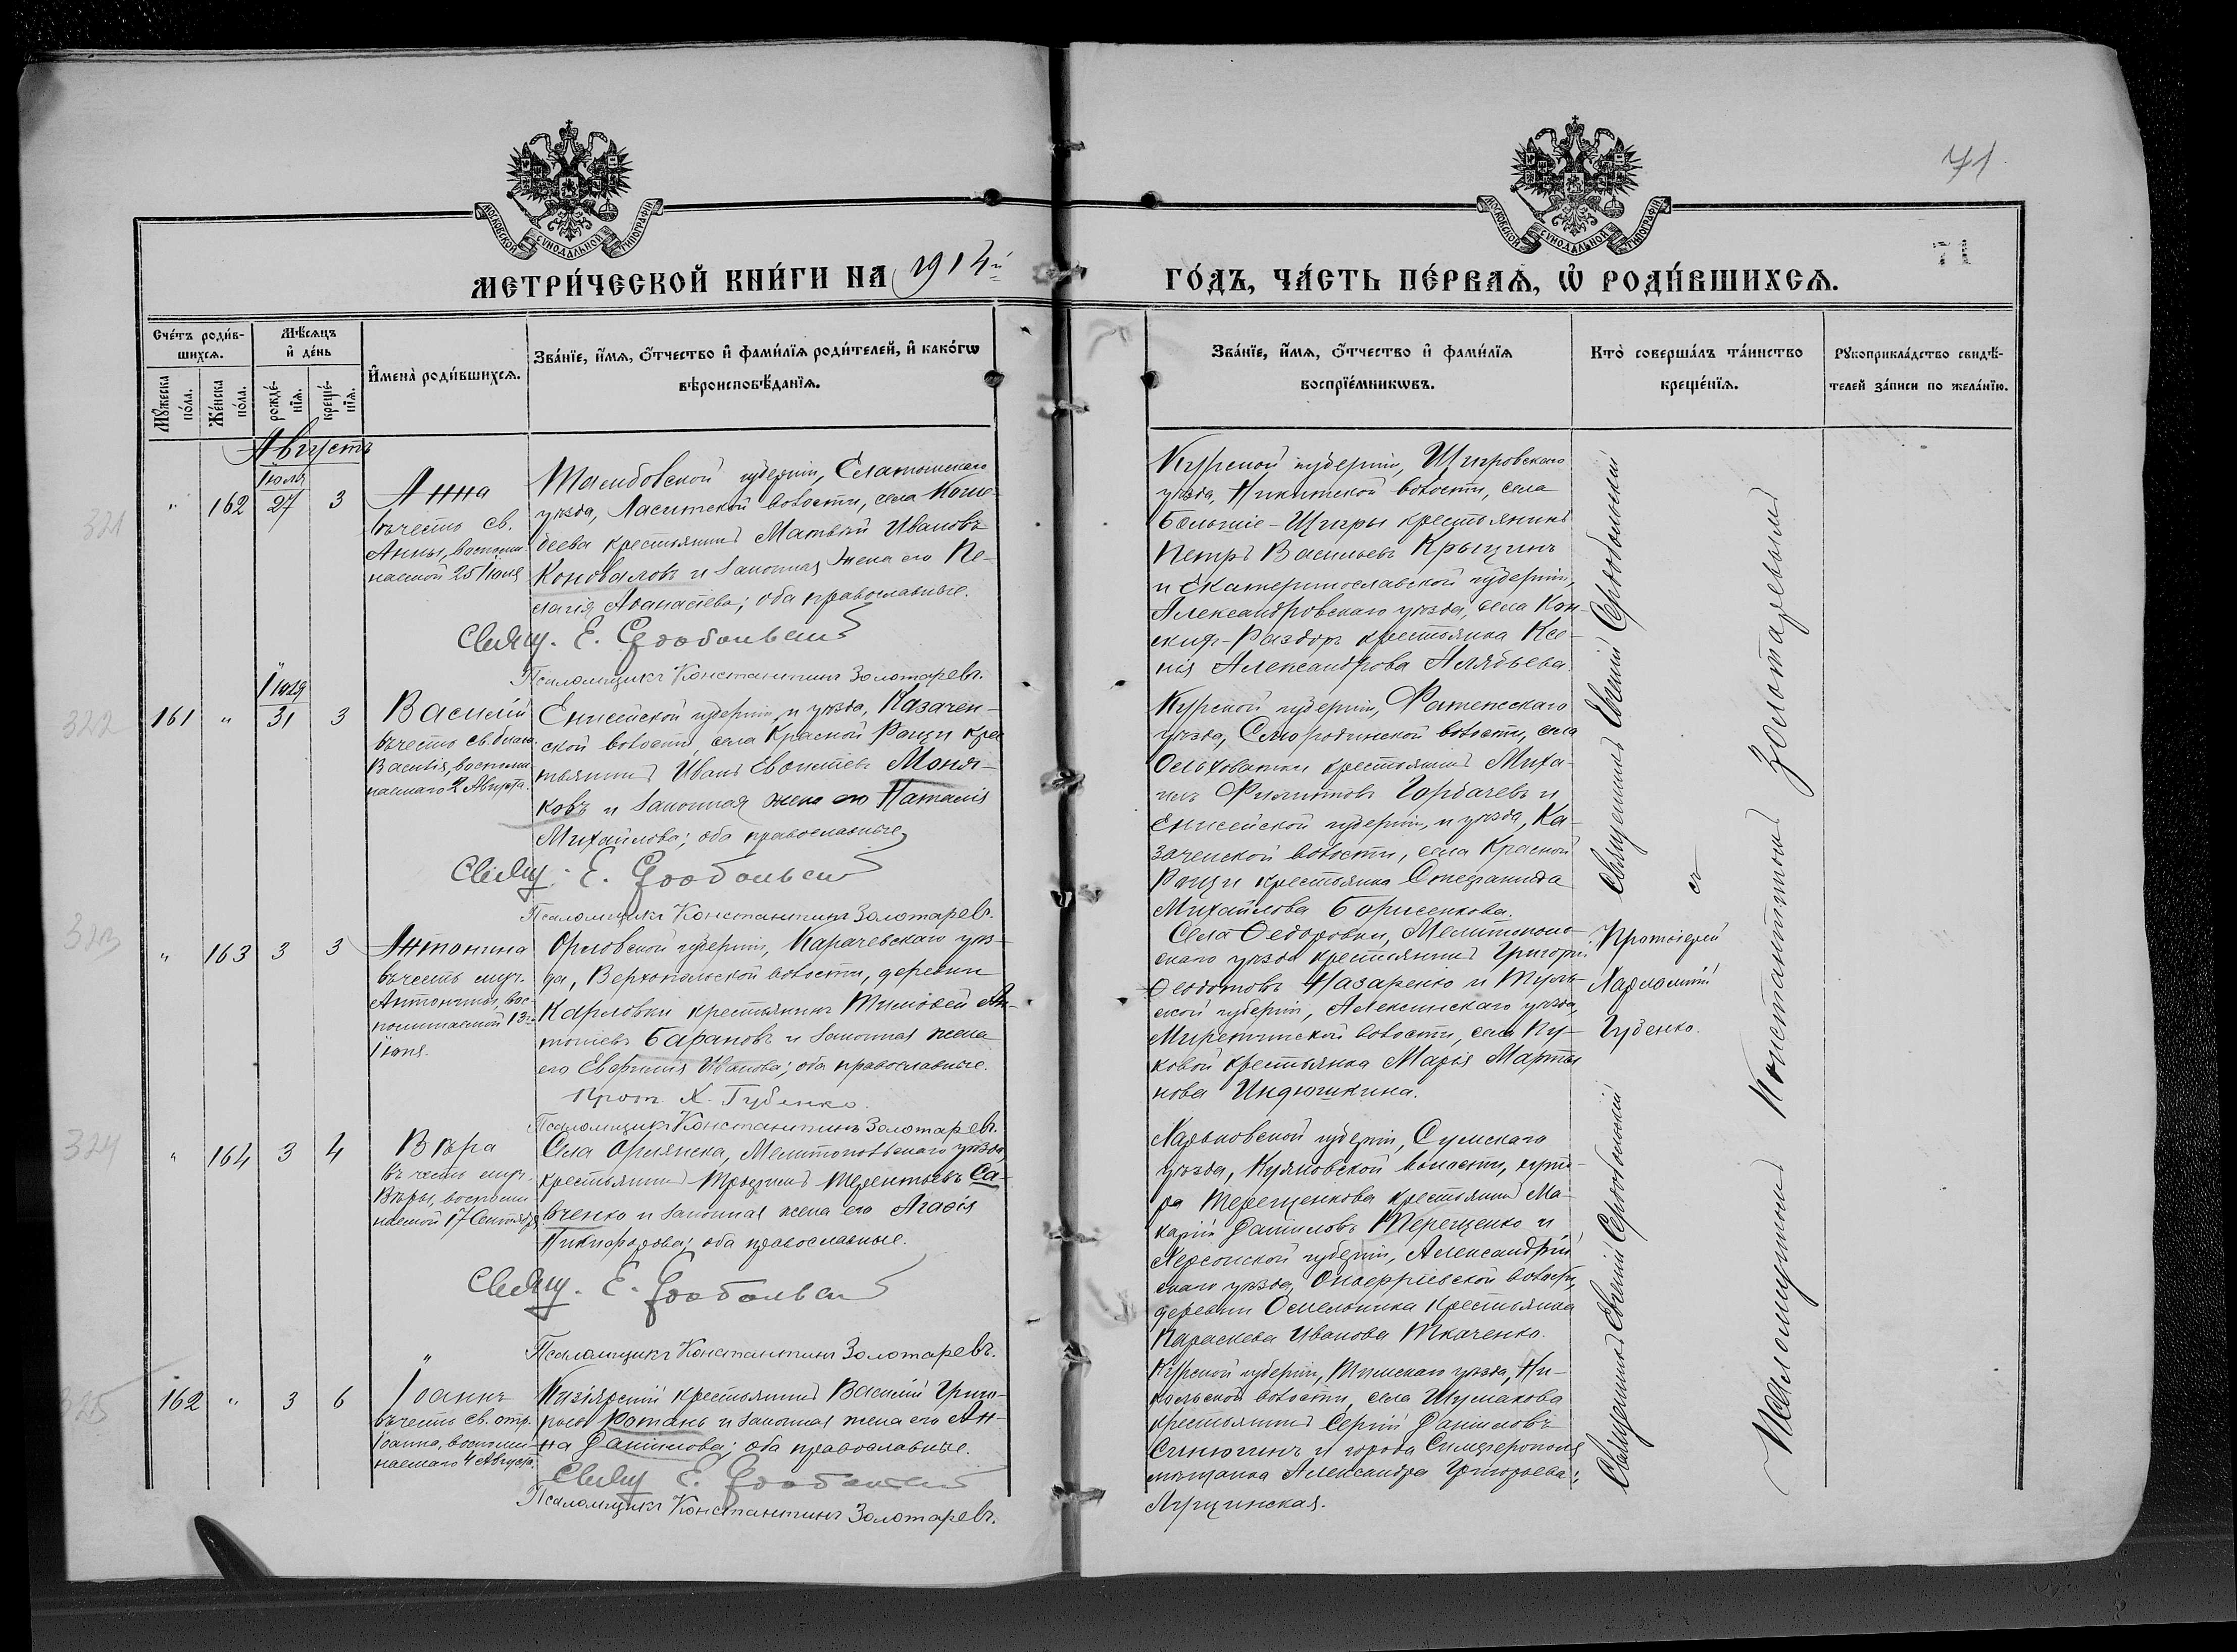 71
71
МОСКОВСКОЙ СѴНОДАЛЬНОЙ ТИПОГРАФІИ
МОСКОВСКОЙ СѴНОДАЛЬНОЙ ТИПОГРАФІИ
МЕТРИ́ЧЕСКОЙ КНИ́ГИ НА 1914й
ГО́ДЪ, ЧА́СТЬ ПЕ́РВАѦ, Ѡ҆ РОДИ́ВШИХСѦ.
Сче́тъ роди́в-
шихсѧ.
Мꙋ́жеска по́ла.
Же́нска по́ла.
Мѣ́сѧцъ
и҆ де́нь
рожде́-
нїѧ.
креще́-
нїѧ.
И҆мена̀ роди́вшихсѧ.
Зва́нїе, и҆́мѧ, ѻ҆́тчество и҆ фами́лїѧ роди́телей, и҆ како́гѡ
вѣроисповѣ́данїѧ.
Зва́нїе, и҆́мѧ, ѻ҆́тчество и҆ фами́лїѧ
воспрїе́мникѡвъ.
Кто̀ соверша́лъ та́инство
креще́нїѧ.
Рꙋкоприкла́дство свидѣ́-
телей за́писи по жела́нїю.
Августъ
321
" 162
Іюля
27 3
Анна
въ честь св.
Анны, воспоми
наемой 25 Іюля
Тамбовской губерніи, Елатомскаго
уѣзда, волости, села
крестьянинъ Матвѣй Ивановъ
Коноваловъ и законная жена его Пе-
лагія Аѳанасіева; оба православные.
Свящ. Е. Сердобольскій
Псаломщикъ Константинъ Золотаревъ.
Курской губерніи, Щигровскаго
уѣзда, Никитской волости, села
Большіе-Щигры крестьянинъ
Петръ Васильевъ Крыцинъ
и Екатеринославской губерніи,
Александровскаго уѣзда, села Кон-
скихъ-Раздоръ крестьянка Ксе-
нія Александрова Алядьева.
322
161 "
Іюля
31 3
Василій
въ честь св. блаж.
Василія, воспоми
наемаго 2 Августа.
Енисейской губерніи, и уѣзда, Казачен-
ской волости, села Красной Рощи кре
стьянинъ Иванъ Моня-
ковъ и законная жена его Наталія
Михайлова; оба православные
Свящ. Е. Сердобольскій
Псаломщикъ Константинъ Золотаревъ.
Курской губерніи, Фатежскаго
уѣзда, Смородинской волости, села
Ольховатки крестьянинъ Миха-
илъ Филипповъ Горбачевъ и
Енисейской губерніи, и уѣзда, Ка-
заченской волости, села Красной
Рощи крестьянка Стефанида
Михайлова Борисенкова.
323
" 163 3 3
Антонина
въ честь муч.
Антонины, вос-
поминаемой 13го
Іюня.
Орловской губерніи, Карачевскаго уѣз-
да, Верхопольской волости, деревни
Карловки крестьянинъ Тимоѳей Ан-
тоніевъ Барановъ и законная жена
его Евфимія Иванова; оба православные.
Прот. Х. Губенко.
Псаломщикъ Константинъ Золотаревъ.
Села Ѳедоровки, Мелитополь-
скаго уѣзда крестьянинъ Григорій
Ѳеодотовъ Назаренко и Туль-
ской губерніи, Алексинскаго уѣзда,
волости, села Пу-
ковой крестьянка Марія Марты
нова Индюшкина.
Протоіерей
Харлампій
Губенко.
324
" 164 3 4
Вѣра
въ честь муч.
Вѣры, воспоми
наемой 17 Сентября
Села Армянска, Мелитопольскаго уѣзда,
крестьянинъ Трифонъ Терентьевъ Са-
вченко и законная жена его Агаѳія
Никифорова; оба православные.
Свящ. Е. Сердобольскій
Псаломщикъ Константинъ Золотаревъ.
Харьковской губерніи, Сумскаго
уѣзда, Куяновской волости, хуто-
ра Терещенкова крестьянинъ Ма-
карій Даниловъ Терещенко и
Херсонской губерніи, Александрій
скаго уѣзда, Онуфріевской волости,
деревни Омельника крестьянка
Параскева Иванова Ткаченко.
325
162 " 3 6
Іоаннъ
въ честь св. отр.
Іоанна, воспоми-
наемаго 4 Августа.
Кизіярскій крестьянинъ Василій Григо-
рьевъ Котанъ и законная жена его Ан-
на Данилова; оба православные.
Свящ. Е. Сердобольскій
Псаломщикъ Константинъ Золотаревъ.
Курской губерніи, Тимскаго уѣзда, Ни-
кольской волости, села Шумакова
крестьянинъ Сергій Даниловъ
Синюгинъ и города Симферополя
мѣщанка Александра Григорьева
Лущинская.
Священникъ Евгеній Сердобольскій
Священникъ Евгеній Сердобольскій
съ
Псаломщикомъ Константиномъ Золотаревымъ